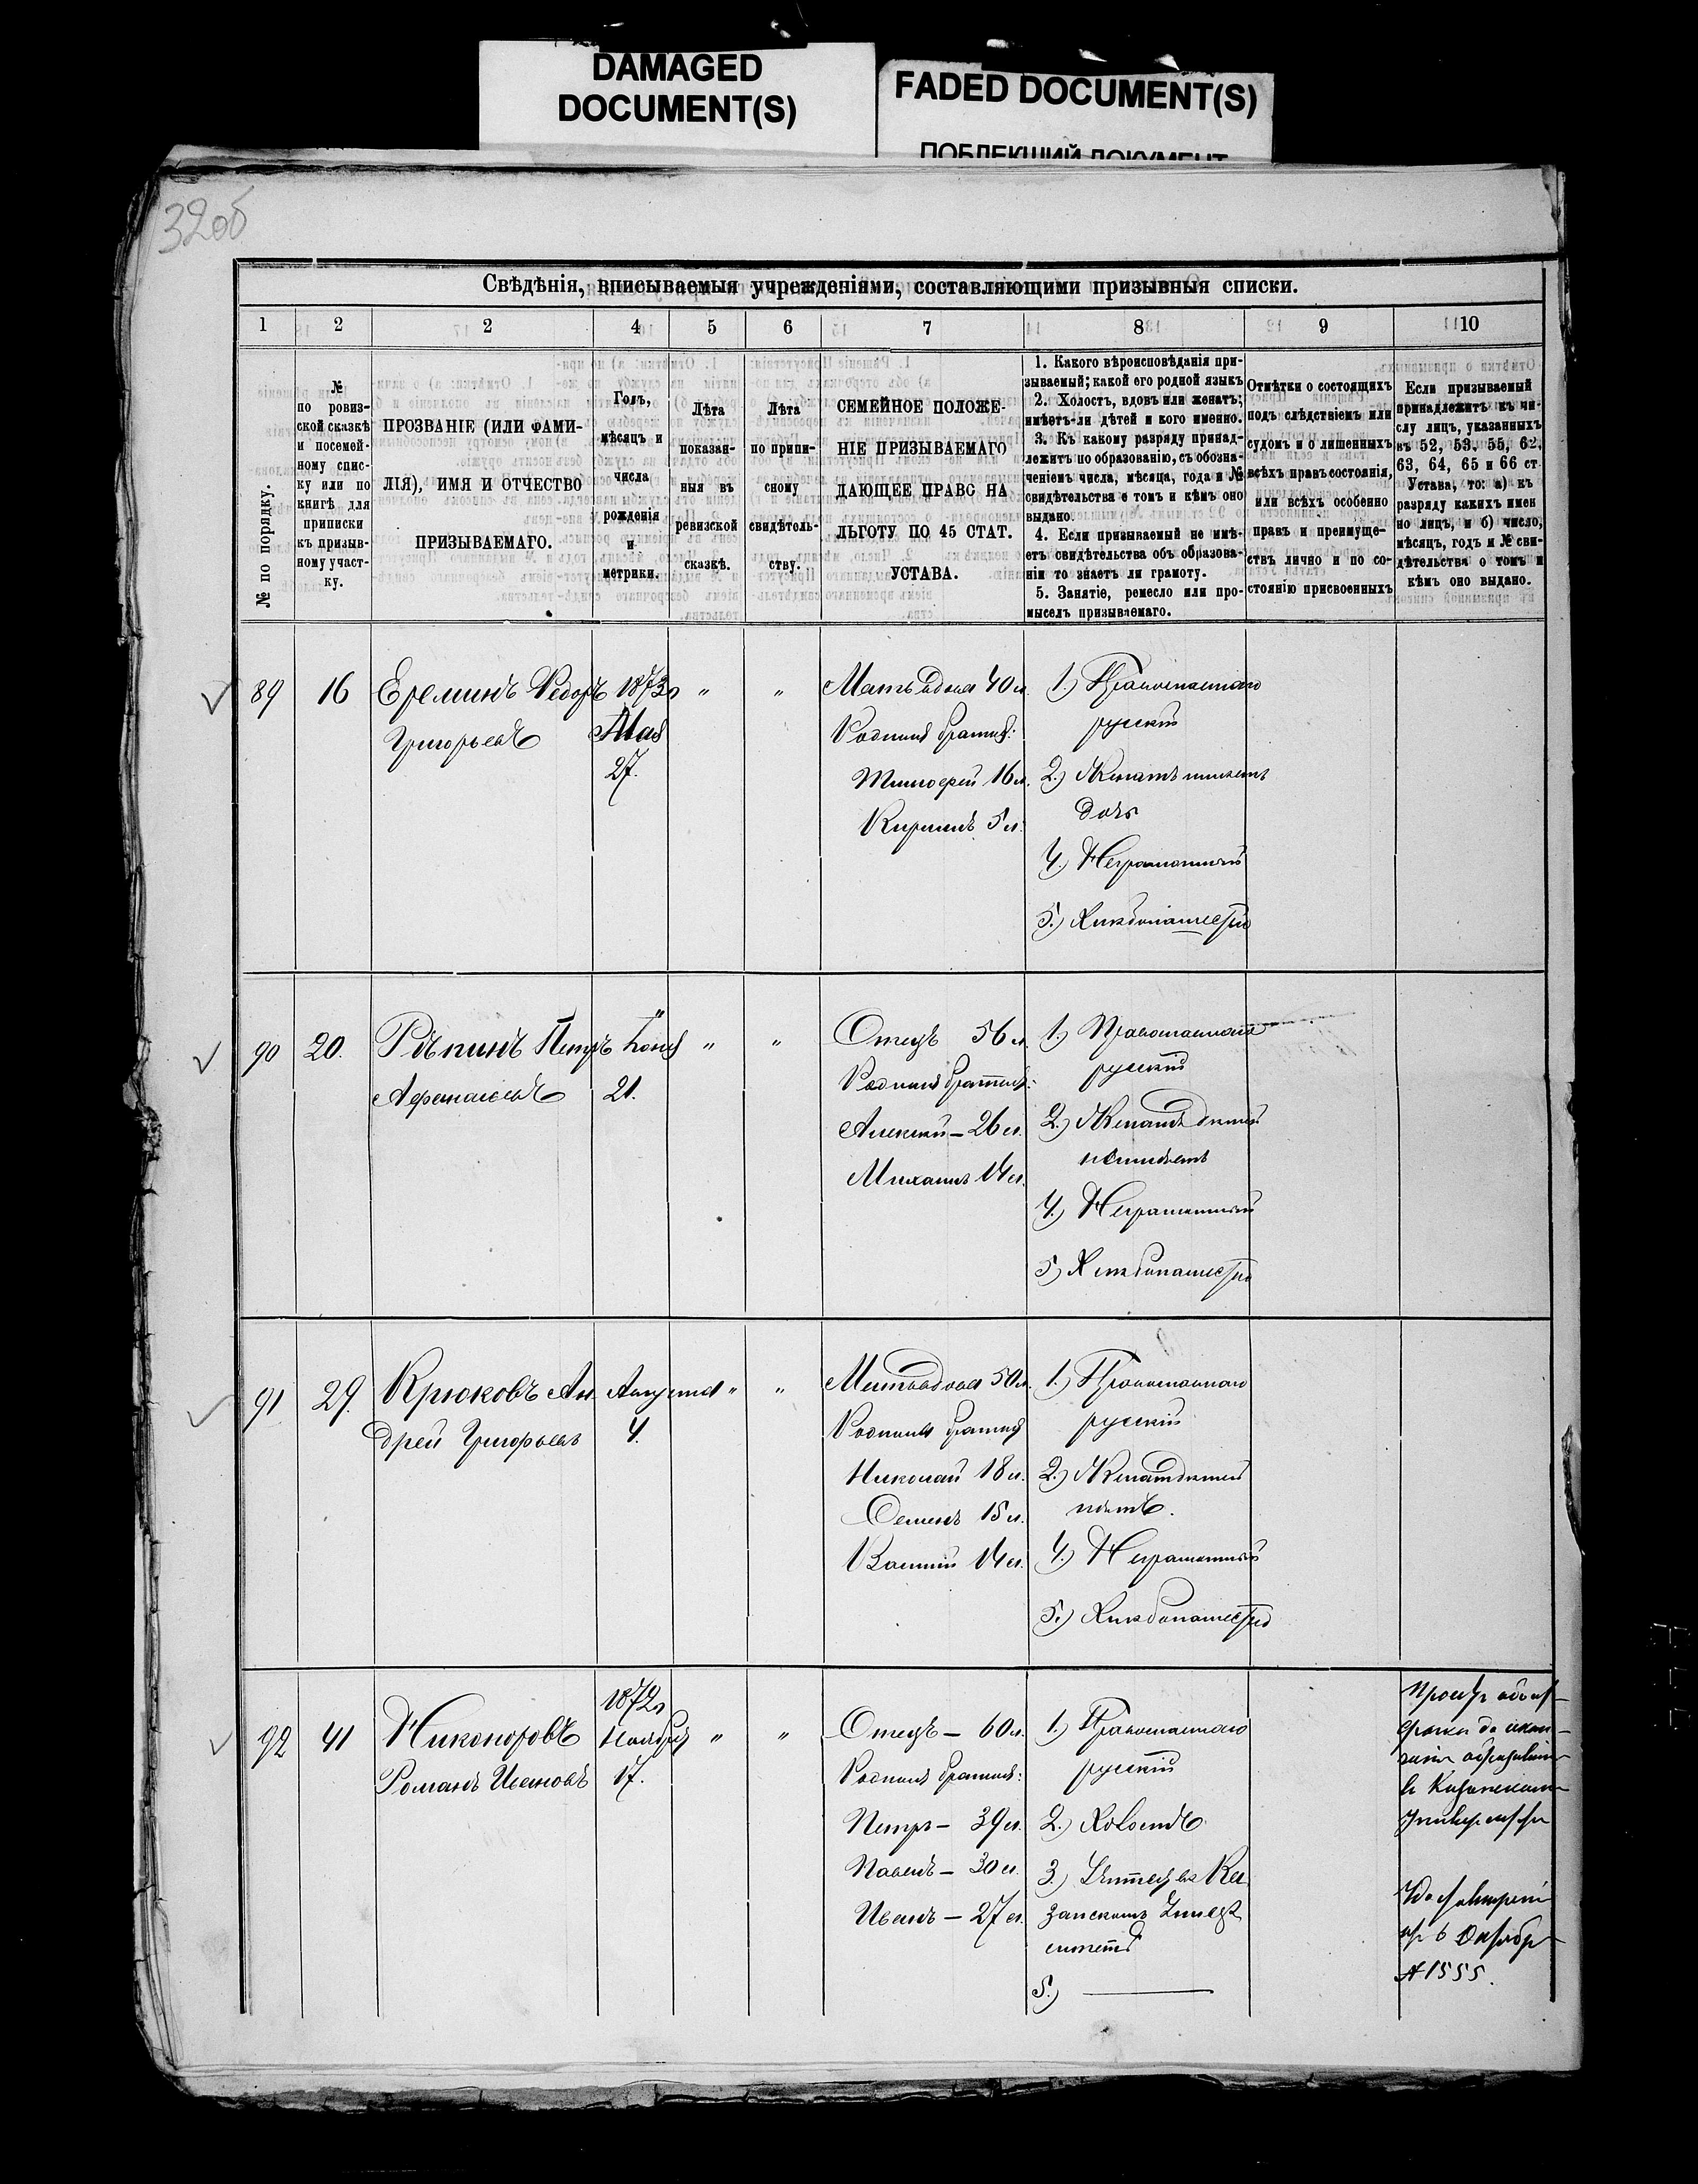 DAMAGED
DOCUMENT(S)
FADED DOCUMENT(S)
ПОБЛЕКШИЙ ДОКУМЕНТ
32об
Свѣдѣнія, вписываемыя учрежденіями, составляющими призывныя списки.
1 2 2 4 5 6 7 8 9 10
№ по порядку.
№
по ровиз-
ской сказкѣ
и посемей-
ному спис-
ку или по
книгѣ для
приписки
къ призыв-
ному участ-
ку.
ПРОЗВАНІЕ (ИЛИ ФАМИ-
ЛІЯ), ИМЯ И ОТЧЕСТВО
ПРИЗЫВАЕМАГО.
Годъ,
мѣсяцъ и
числа
рожденія
и
метрики.
Лѣта
показан-
ныя въ
ревизской
сказкѣ.
Лѣта
по припи-
сному
свидѣтель-
ству.
СЕМЕЙНОЕ ПОЛОЖЕ-
НІЕ ПРИЗЫВАЕМАГО
ДАЮЩЕЕ ПРАВО НА
ЛЬГОТУ ПО 45 СТАТ.
УСТАВА.
1. Какого вѣроисповѣданія при-
зываемый; какой его родной языкъ
2. Холостъ, вдовъ или женатъ;
имѣетъ-ли дѣтей и кого именно.
3. Къ какому разряду принад-
лежитъ по образованію, съ обозна-
ченіемъ числа, мѣсяца, года и №
свидѣтельства о томъ и кѣмъ оно
выдано.
4. Если призываемый не имѣ-
етъ свидѣтельства объ образова-
ніи то знаетъ ли грамоту.
5. Занятіе, ремесло или про-
мыселъ призываемаго.
Отмѣтки о состоящихъ
подъ слѣдствіемъ или
судомъ и о лишенныхъ
всѣхъ правъ состоянія,
или всѣхъ особенно
правъ и преимуще-
ствъ лично и по со-
стоянію присвоенныхъ
Если призываемый
принадлежитъ къ чи-
слу лицъ, указанныхъ
въ 52, 53. 55, 62.
63, 64, 65 и 66 ст
Устава, то: а) къ
разряду какихъ имен
но лицъ, и б) число,
мѣсяцъ, годъ и № сви-
дѣтельства о томъ и
кѣмъ оно выдано.
89 16 Ереминъ Ѳедоръ
Григорьевъ
1873г
Мая
27.
" "
Мать вдова 40 л.
Родныя братья:
Тимофей 16 л.
Кирилъ 5 л.
1.) Православнаго
русскій
2.) Женатъ имѣетъ
дочь
4.) Неграмотный
5.) Хлѣбопашество
90 20. Рѣпинъ Петръ
Афанасьевъ
"
Іюня
21.
" "
Отецъ 56 л.
Родныя братья:
Алексѣй — 26 л.
Михаилъ 14 л.
1.) Православнаго
русскій
2.) Женатъ дѣтей
неимѣетъ
4.) Неграмотный
5.) Хлѣбопашество
91 29. Крюковъ Ан-
дрей Григорьевъ
Августа
4.
" "
Мать вдова 50 л.
Родныя братья
Николай 18 л.
Семенъ 15 л.
Василій 14 л.
1.) Православнаго
русскій
2.) Женатъ дѣтей
нѣтъ.
4.) Неграмотный
5.) Хлѣбопашество
92 41 Никоноровъ
Романъ Ивановъ
1872г
Ноября
17.
" "
Отецъ — 60 л.
Родныя братья:
Петръ — 39 л.
Павелъ — 30 л.
Иванъ — 27 л.
1.) Православнаго
русскій
2.) Холостъ
3.) въ Ка
занскомъ
5.) ———
до окон-
чанія образованія
въ Казанскомъ
Университ
6 Октябр
№ 1555.